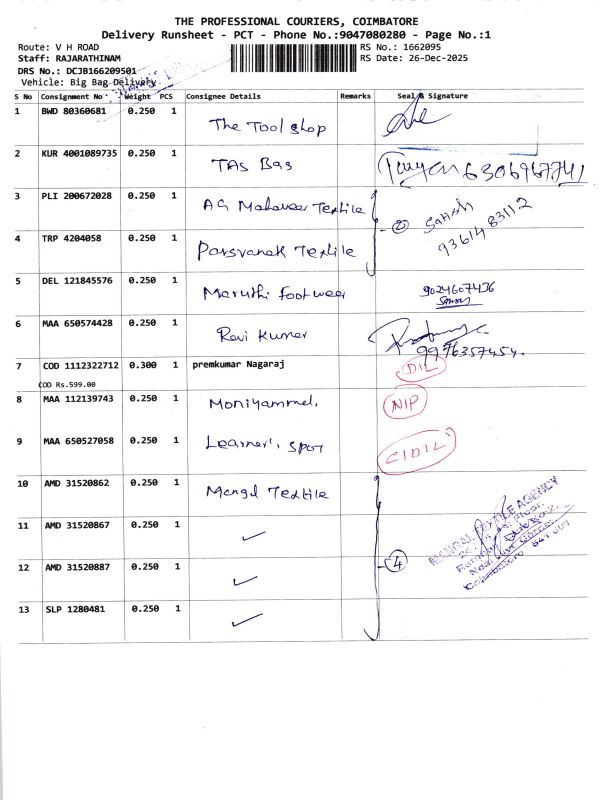 THE PROFESSIONAL COURIERS, COIMBATORE
Delivery Runsheet - PCT - Phone No.:9047080280 - Page No.:1
Route: V H ROAD RS No.: 1662095
Staff: RAJARATHINAM RS Date: 26-Dec-2025
DRS No.: DCJB166209501
Vehicle: Big Bag Delivery
S No Consignment No Weight PCS Consignee Details Remarks Seal & Signature
1 BWD 80360681 0.250 1 The Tool shop
2 KUR 4001089735 0.250 1 TAs Bas 6306967741
3 PLI 200672028 0.250 1 AG Mahaveer Textile
② Satish 9361483112
4 TRP 4204058 0.250 1 Parsvanak Textile
5 DEL 121845576 0.250 1 Maruthi footweer 9024607436
6 MAA 650574428 0.250 1 Ravi Kumar 9976357454
7 COD 1112322712 0.300 1 premkumar Nagaraj DIL
COD Rs.599.00
8 MAA 112139743 0.250 1 Moniyammel, NIP
9 MAA 650527058 0.250 1 Learner's spot CIDIL
10 AMD 31520862 0.250 1 Mangal Textile
11 AMD 31520867 0.250 1 ✓
12 AMD 31520887 0.250 1 ✓ ④
13 SLP 1280481 0.250 1 ✓